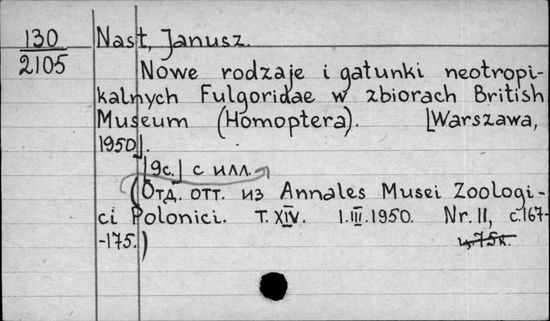 130
2105
Nast, Janusz.
Nowe rodzaje i gatunki neotropi-
kalnych Fulgoridae w zbiorach British
Museum (Homoptera). [Warszawa,
1950].
[9с.] с илл.
(Отд. отт. из Annales Musei Zoologi-
ci Polonici. Т. XIV. 1.III.1950. Nr. 11, с. 167-
-175.)
ц, 75к.